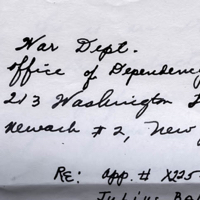 War Dept.
Office of Dependency
213 Washington
Newark #2, New
RE: App. # X225
Julius Ba